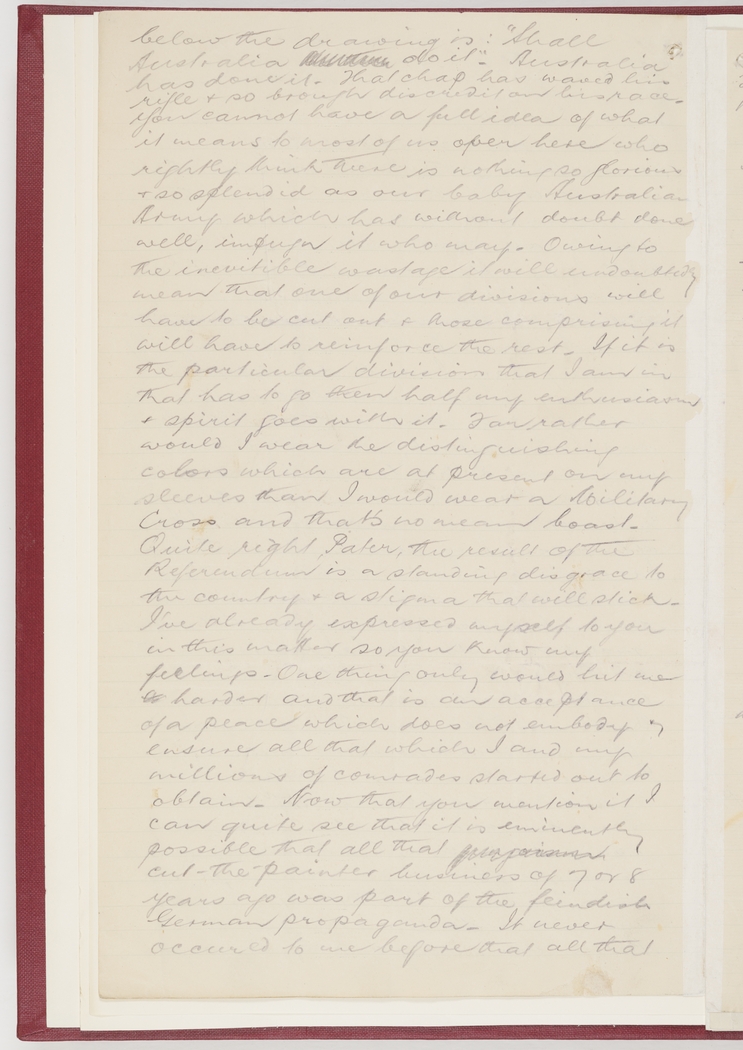 below the drawing is: "Shall
Australia do it". Australia
has done it. That chap has waved his
rifle & so brough discredit on his race.
you cannot have a full idea of what
it means to most of us over here who
rightly think there is nothing so glorious
& so splendid as our baby Australian
Army which has without doubt done
well, impugn it who may. Owing to
the inevitible wastage it will undoubtedly
mean that one of our divisions will
have to be cut out & those comprising it
will have to reinforce the rest. If it is
the particular division that I am in
that has to go then half my enthusiasm
& spirit goes with it. Far rather
would I wear the distinguishing
colors which are at present on my
sleeves than I would wear a Military
Cross and that's no mean boast.
Quite right Pater, the result of the
Referendum is a standing disgrace to
the country & a stigma that will stick.
I've already expressed myself to you
in this matter so you know my
feelings. One thing only would hit me
harder and that is an acceptance
of a peace which does not embody &
ensure all that which I and my
millions of comrades started out to
obtain. Now that you mention it I
can quite see that it is eminently
possible that all that
cut-the-painter business of 7 or 8
years ago was part of the feindish
German propaganda. It never
occured to me before that all that